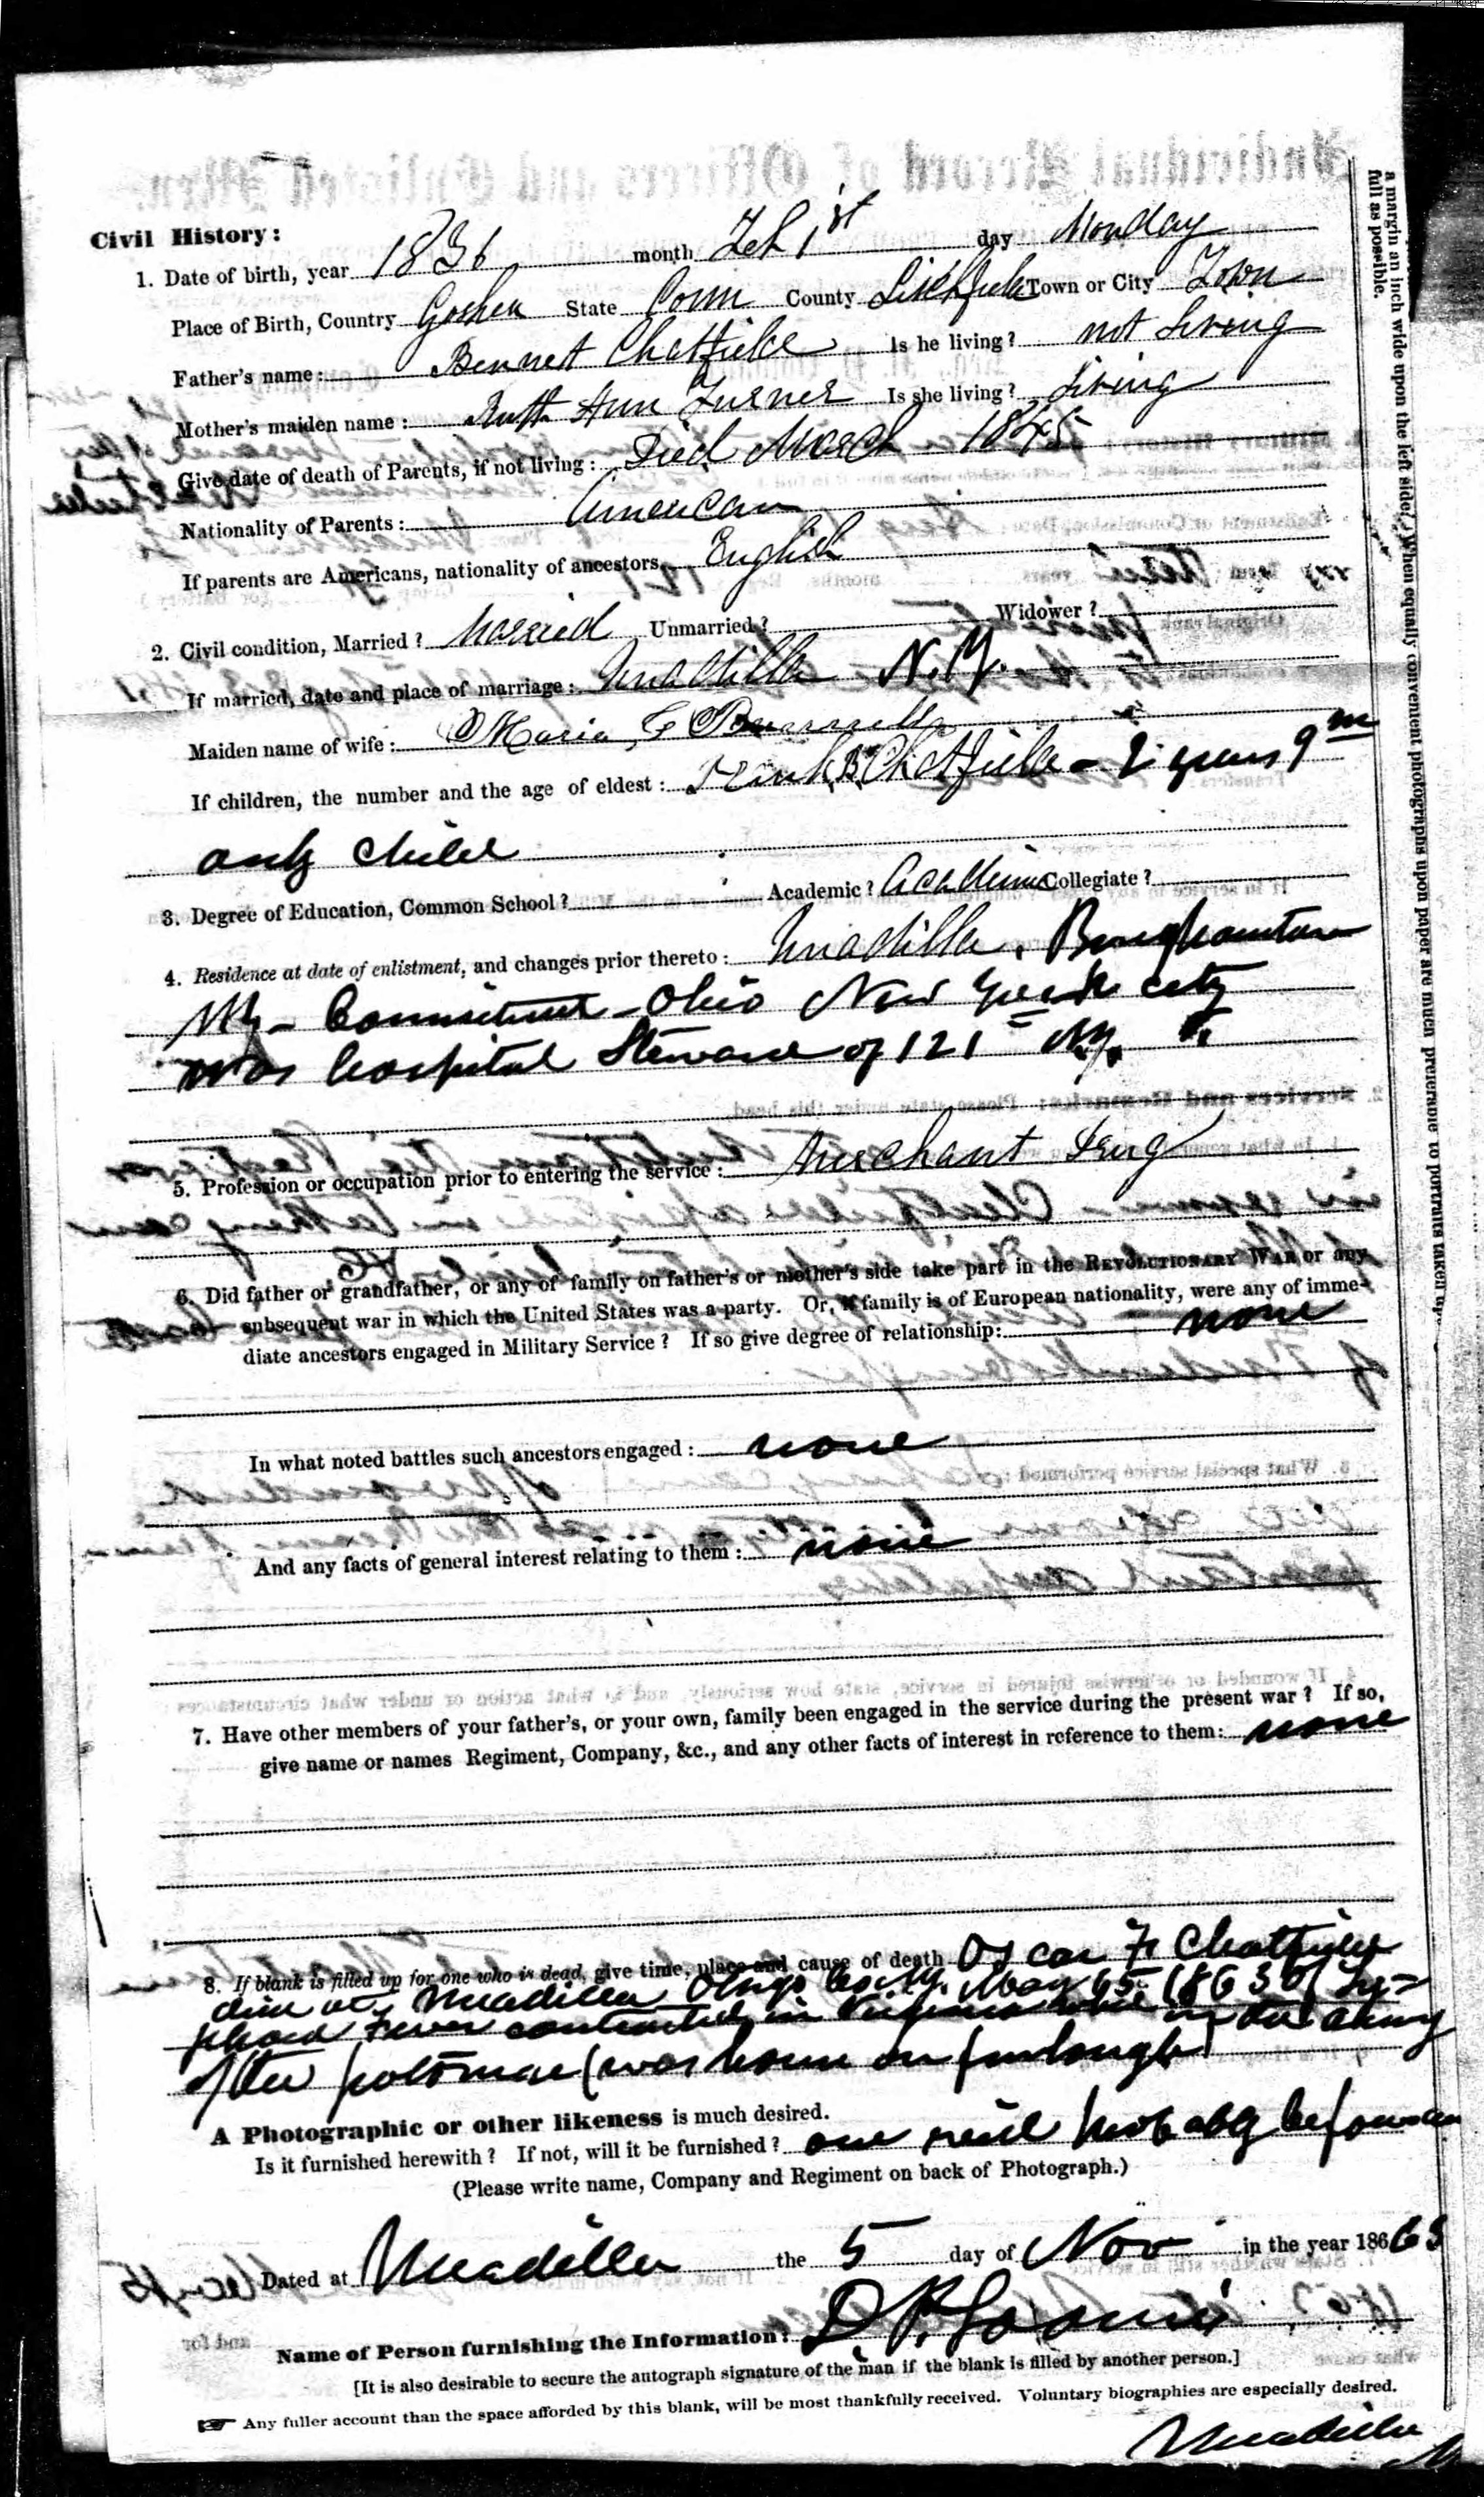 a margin an inch wide upon the left side. When equally convenient photographs upon paper are much preferable to portraits taken up-
full as possible.
Individual Record of Officers and Enlisted Men.
Civil History:
1. Date of birth, year 1836 month Feb 1st day Monday
Place of Birth, Country Goshen State Conn County Litchfield Town or City Town
Father's name: Bennet Chatfield Is he living? not Living
Mother's maiden name: Ruth Ann Turner Is she living? Living
Give date of death of Parents, if not living: Died March 1845
Nationality of Parents: American
If parents are Americans, nationality of ancestors, English
2. Civil condition, Married? Married Unmarried? Widower?
If married, date and place of marriage: Unadilla N.Y.
Maiden name of wife: Maria
If children, the number and the age of eldest: Frank B Chatfield - 2 years 9 m
only child
3. Degree of Education, Common School? Academic? Academic Collegiate?
4. Residence at date of enlistment, and changes prior thereto: Unadilla, Binghamton
NY - Connecticut - Ohio New York city
was hospital Steward of 121 NY.
5. Profession or occupation prior to entering the service: Merchant Drug
6. Did father or grandfather, or any of family on father's or mother's side take part in the REVOLUTIONARY WAR or any
subsequent war in which the United States was a party. Or, if family is of European nationality, were any of imme-
diate ancestors engaged in Military Service? If so give degree of relationship: none
In what noted battles such ancestors engaged: none
And any facts of general interest relating to them: none
7. Have other members of your father's, or your own, family been engaged in the service during the present war? If so,
give name or names Regiment, Company, &c., and any other facts of interest in reference to them: none
8. If blank is filled up for one who is dead, give time, place and cause of death Oscar F Chatfield
died at Unadilla Otsego Co N.Y. May 1863 of Ty-
phoid Fever contracted in Virginia while in the army
of the potomac (was home on furlough)
A Photographic or other likeness is much desired.
Is it furnished herewith? If not, will it be furnished? one will probably be
(Please write name, Company and Regiment on back of Photograph.)
Dated at Unadilla the 5 day of Nov in the year 186
Name of Person furnishing the Information: D. P. Loomis
[It is also desirable to secure the autograph signature of the man if the blank is filled by another person.]
☞ Any fuller account than the space afforded by this blank, will be most thankfully received. Voluntary biographies are especially desired.
Unadilla